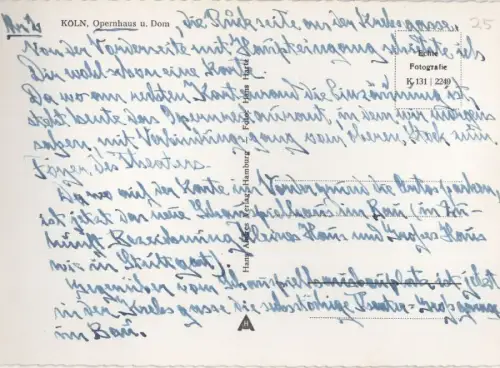 KÖLN, Opernhaus u. Dom, die Rückseite an der Krebsgasse.
25
Von der Vorderseite mit Haupteingang schickte ich
Dir wohl schon eine Karte.
Da wo am rechten Kartenrand die Einzäunung ist,
steht heute das Opernrestaurant, in dem wir
saßen, mit Verbindungsgang vom oberen Stock zum
Foyer des Theaters.
Da wo auf der Karte im Vordergrund die Autos parken
ist jetzt das neue Schauspielhaus im Bau, in
Kleines Haus und Großes Haus
wie in Stuttgart.
Gegenüber vom Schauspiel ist jetzt
in der Krebsgasse die sechsstöckige Theater-Großgarage
im Bau.
Echte
Fotografie
K 131 | 2249
Hans Andres Verlag, Hamburg Foto: Hans Hartz